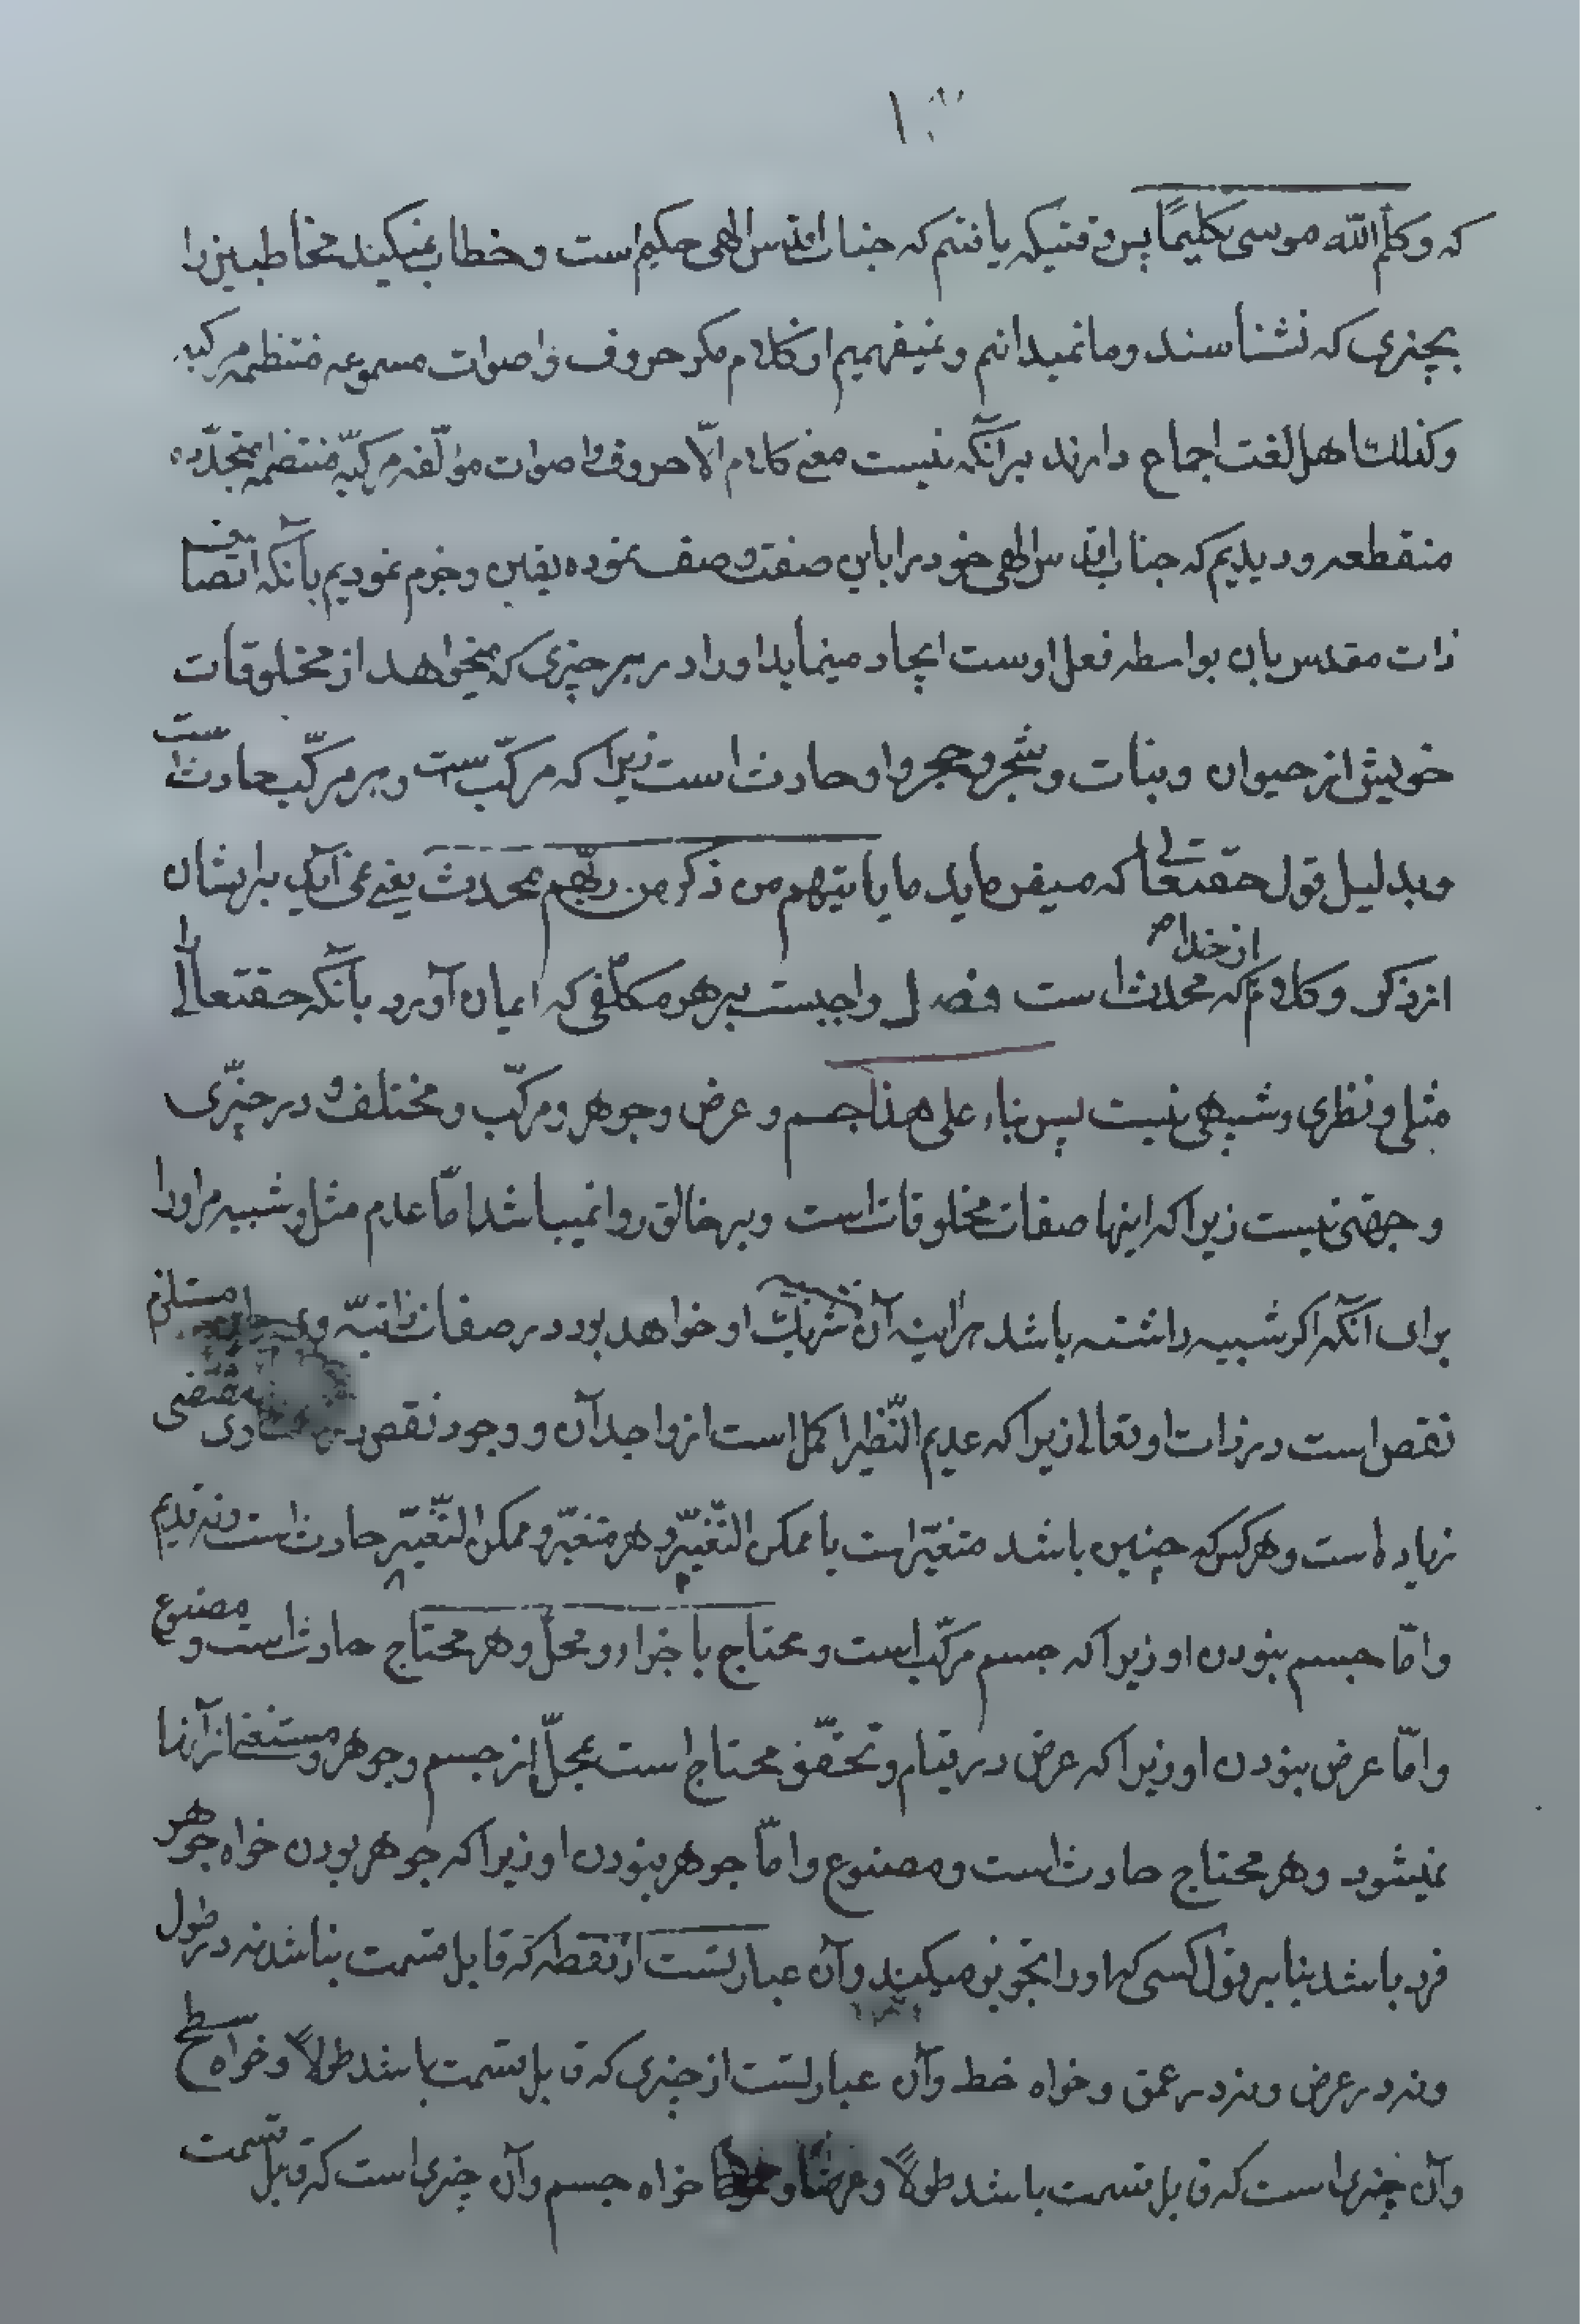 ۱۰۳
که وکلّم الله موسی تکلیمًا پس وقتیکه یافتیم که جناب اقدس الهی حکیم است و خطاب نمیکند مخاطبین را
بچیزی که نشناسند و ما نمیدانیم و نمیفهمیم از کلام مکر حروف و اصوات مسموعه منتظمه مرکبه
وکذلک اهل لغت اجماع دارند برآنکه نیست معنی کلام الّا حروف و اصوات مؤلّفه مرکبّه منتضمه متجدّده
منقطعه و دیدیم که جناب اقدس الهی خود را باین صفت وصف نموده یقین و جزم نمودیم بآنکه اتصاف
ذات مقدس بان بواسطه فعل اوست ایجاد مینماید او را در هر چیزی که میخواهد از مخلوقات
خویش از حیوان و نبات و شجر و حجر و او حادث است زیرا که مرکّب ست و هر مرکّب حادث است
وبدلیل قول حقتعالی که میفرماید ما یاتیهم من ذکر من ربّهم محدث یعنی نمی آید برایشان
از ذکر و کلام از خدا مکر که محدث است فصل واجبست بر هر مکلّفی که ایمان آورد بآنکه حقتعالی را
مثلی و نظری و شبیهی نیست پس بناء علی هذا جسم و عرض و جوهر و مرکّب و مختلف و در حیّزی
و جهتی نیست زیرا که اینها صفات مخلوقات است و بر خالق روا نمیباشد امّا عدم مثل و شبیه مر او را
برای آنکه اکر شبیه داشته باشد هر اینه آن شریک او خواهد بود در صفات ذاتیّه و مستلزم
نقص است در ذات او تعالی زیرا که عدیم النّظیر اکمل است از واجد آن و وجود نقص مقتضی
زیاده است و هر کس که چنین باشد متغیّر است یا ممکن التّغییر و هر متغیّر و ممکن التّغییر حادث است و نه قدیم
وامّا جسم نبودن او زیرا که جسم مرکّب است و محتاج باجزاء و محلّ و هر محتاج حادث است و مصنوع
وامّا عرض نبودن او زیرا که عرض در قیام و تحقّق محتاج است بمحلّ از جسم و جوهر و مستغنی از آنها
نمیشود و هر محتاج حادث است و مصنوع وامّا جوهر نبودن او زیرا که جوهر بودن خواه جوهر
فرد باشد بنا بر قول کسی که او را تجویز میکند و آن عبارتست از نقطه که قابل قسمت نباشد نه در طول
ونه در عرض و نه در عمق و خواه خط و آن عبارتست از چیزی که قابل قسمت باشد طولاً و خواه سطح
وآن چیزی است که قابل قسمت باشد طولاً و عرضاً و خواه جسم و آن چیزی است که قابل قسمت